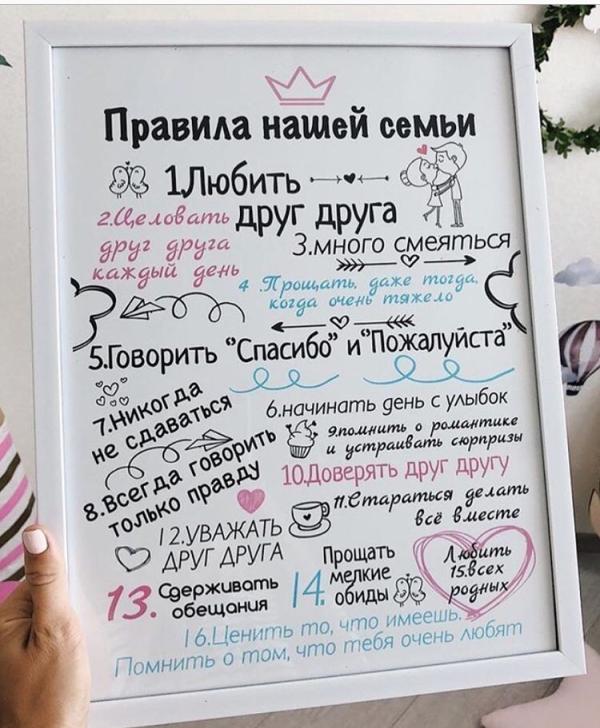 Правила нашей семьи
1Любить
друг друга
2.Целовать
друг друга
каждый день
3.много смеяться
4.Прощать, даже тогда,
когда очень тяжело
5.Говорить "Спасибо" и "Пожалуйста"
6.начинать день с улыбок
7.Никогда
не сдаваться
8.Всегда говорить
только правду
9.помнить о романтике
и устраивать сюрпризы
10.Доверять друг другу
11.Стараться делать
всё вместе
12.УВАЖАТЬ
ДРУГ ДРУГА
13. Сдерживать
обещания
14. Прощать
мелкие
обиды
Любить
15.всех
родных
16.Ценить то, что имеешь.
Помнить о том, что тебя очень любят